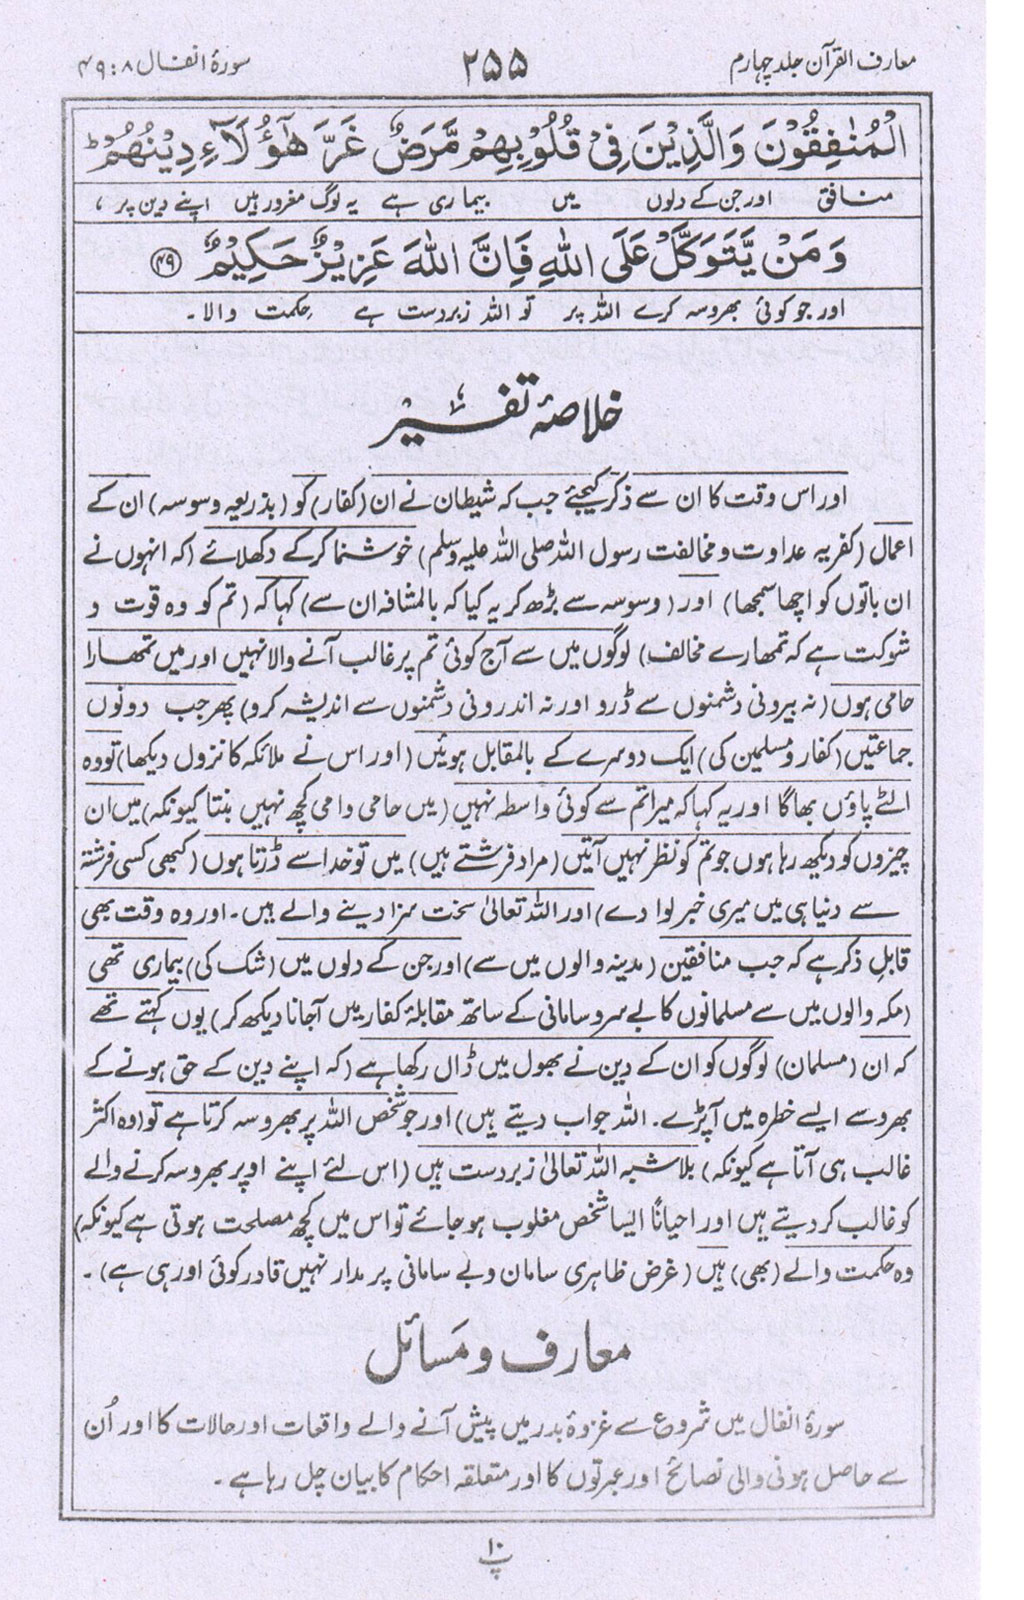 معارف القرآن جلد چہارم
۲۵۵
سورۂ انفال ۸ : ۴۹
الْمُنٰفِقُوْنَ وَالَّذِيْنَ فِيْ قُلُوْبِهِمْ مَّرَضٌ غَرَّ هٰٓؤُلَآءِ دِيْنُهُمْ ؕ
منافق اور جن کے دلوں میں بیماری ہے یہ لوگ مغرور ہیں اپنے دین پر ،
وَمَنْ يَّتَوَكَّلْ عَلَى اللّٰهِ فَاِنَّ اللّٰهَ عَزِيْزٌ حَكِيْمٌ ﴿۴۹﴾
اور جو کوئی بھروسہ کرے اللہ پر تو اللہ زبردست ہے حکمت والا ۔
خلاصۂ تفسیر
اور اس وقت کا ان سے ذکر کیجئے جب کہ شیطان نے ان (کفار) کو (بذریعہ وسوسہ) ان کے
اعمال (کفریہ عداوت و مخالفت رسول اللہ صلی اللہ علیہ وسلم) خوشنما کر کے دکھلائے (کہ انہوں نے
ان باتوں کو اچھا سمجھا) اور (وسوسہ سے بڑھ کر یہ کیا کہ بالمشافہ ان سے) کہا کہ (تم کو وہ قوت و
شوکت ہے کہ تمھارے مخالف) لوگوں میں سے آج کوئی تم پر غالب آنے والا نہیں اور میں تمھارا
حامی ہوں (نہ بیرونی دشمنوں سے ڈرو اور نہ اندرونی دشمنوں سے اندیشہ کرو) پھر جب دونوں
جماعتیں (کفار و مسلمین کی) ایک دوسرے کے بالمقابل ہوئیں (اور اس نے ملائکہ کا نزول دیکھا) تو وہ
الٹے پاؤں بھاگا اور یہ کہا کہ میرا تم سے کوئی واسطہ نہیں (میں حامی وامی کچھ نہیں بنتا کیونکہ) میں ان
چیزوں کو دیکھ رہا ہوں جو تم کو نظر نہیں آتیں (مراد فرشتے ہیں) میں تو خدا سے ڈرتا ہوں (کبھی کسی فرشتہ
سے دنیا ہی میں میری خبر لوا دے) اور اللہ تعالیٰ سخت سزا دینے والے ہیں۔ اور وہ وقت بھی
قابلِ ذکر ہے کہ جب منافقین (مدینہ والوں میں سے) اور جن کے دلوں میں (شک کی) بیماری تھی
(مکہ والوں میں سے مسلمانوں کا بے سرو سامانی کے ساتھ مقابلۂ کفار میں آجانا دیکھ کر) یوں کہتے تھے
کہ ان (مسلمان) لوگوں کو ان کے دین نے بھول میں ڈال رکھا ہے (کہ اپنے دین کے حق ہونے کے
بھروسے ایسے خطرہ میں آپڑے۔ اللہ جواب دیتے ہیں) اور جو شخص اللہ پر بھروسہ کرتا ہے تو (وہ اکثر
غالب ہی آتا ہے کیونکہ) بلا شبہ اللہ تعالیٰ زبردست ہیں (اس لئے اپنے اوپر بھروسہ کرنے والے
کو غالب کر دیتے ہیں اور احیاناً ایسا شخص مغلوب ہو جائے تو اس میں کچھ مصلحت ہوتی ہے کیونکہ)
وہ حکمت والے (بھی) ہیں (غرض ظاہری سامان و بے سامانی پر مدار نہیں قادر کوئی اور ہی ہے)۔
معارف و مسائل
سورۂ انفال میں شروع سے غزوۂ بدر میں پیش آنے والے واقعات اور حالات کا اور اُن
سے حاصل ہونی والی نصائح اور عبرتوں کا اور متعلقہ احکام کا بیان چل رہا ہے۔
۱۰
پ